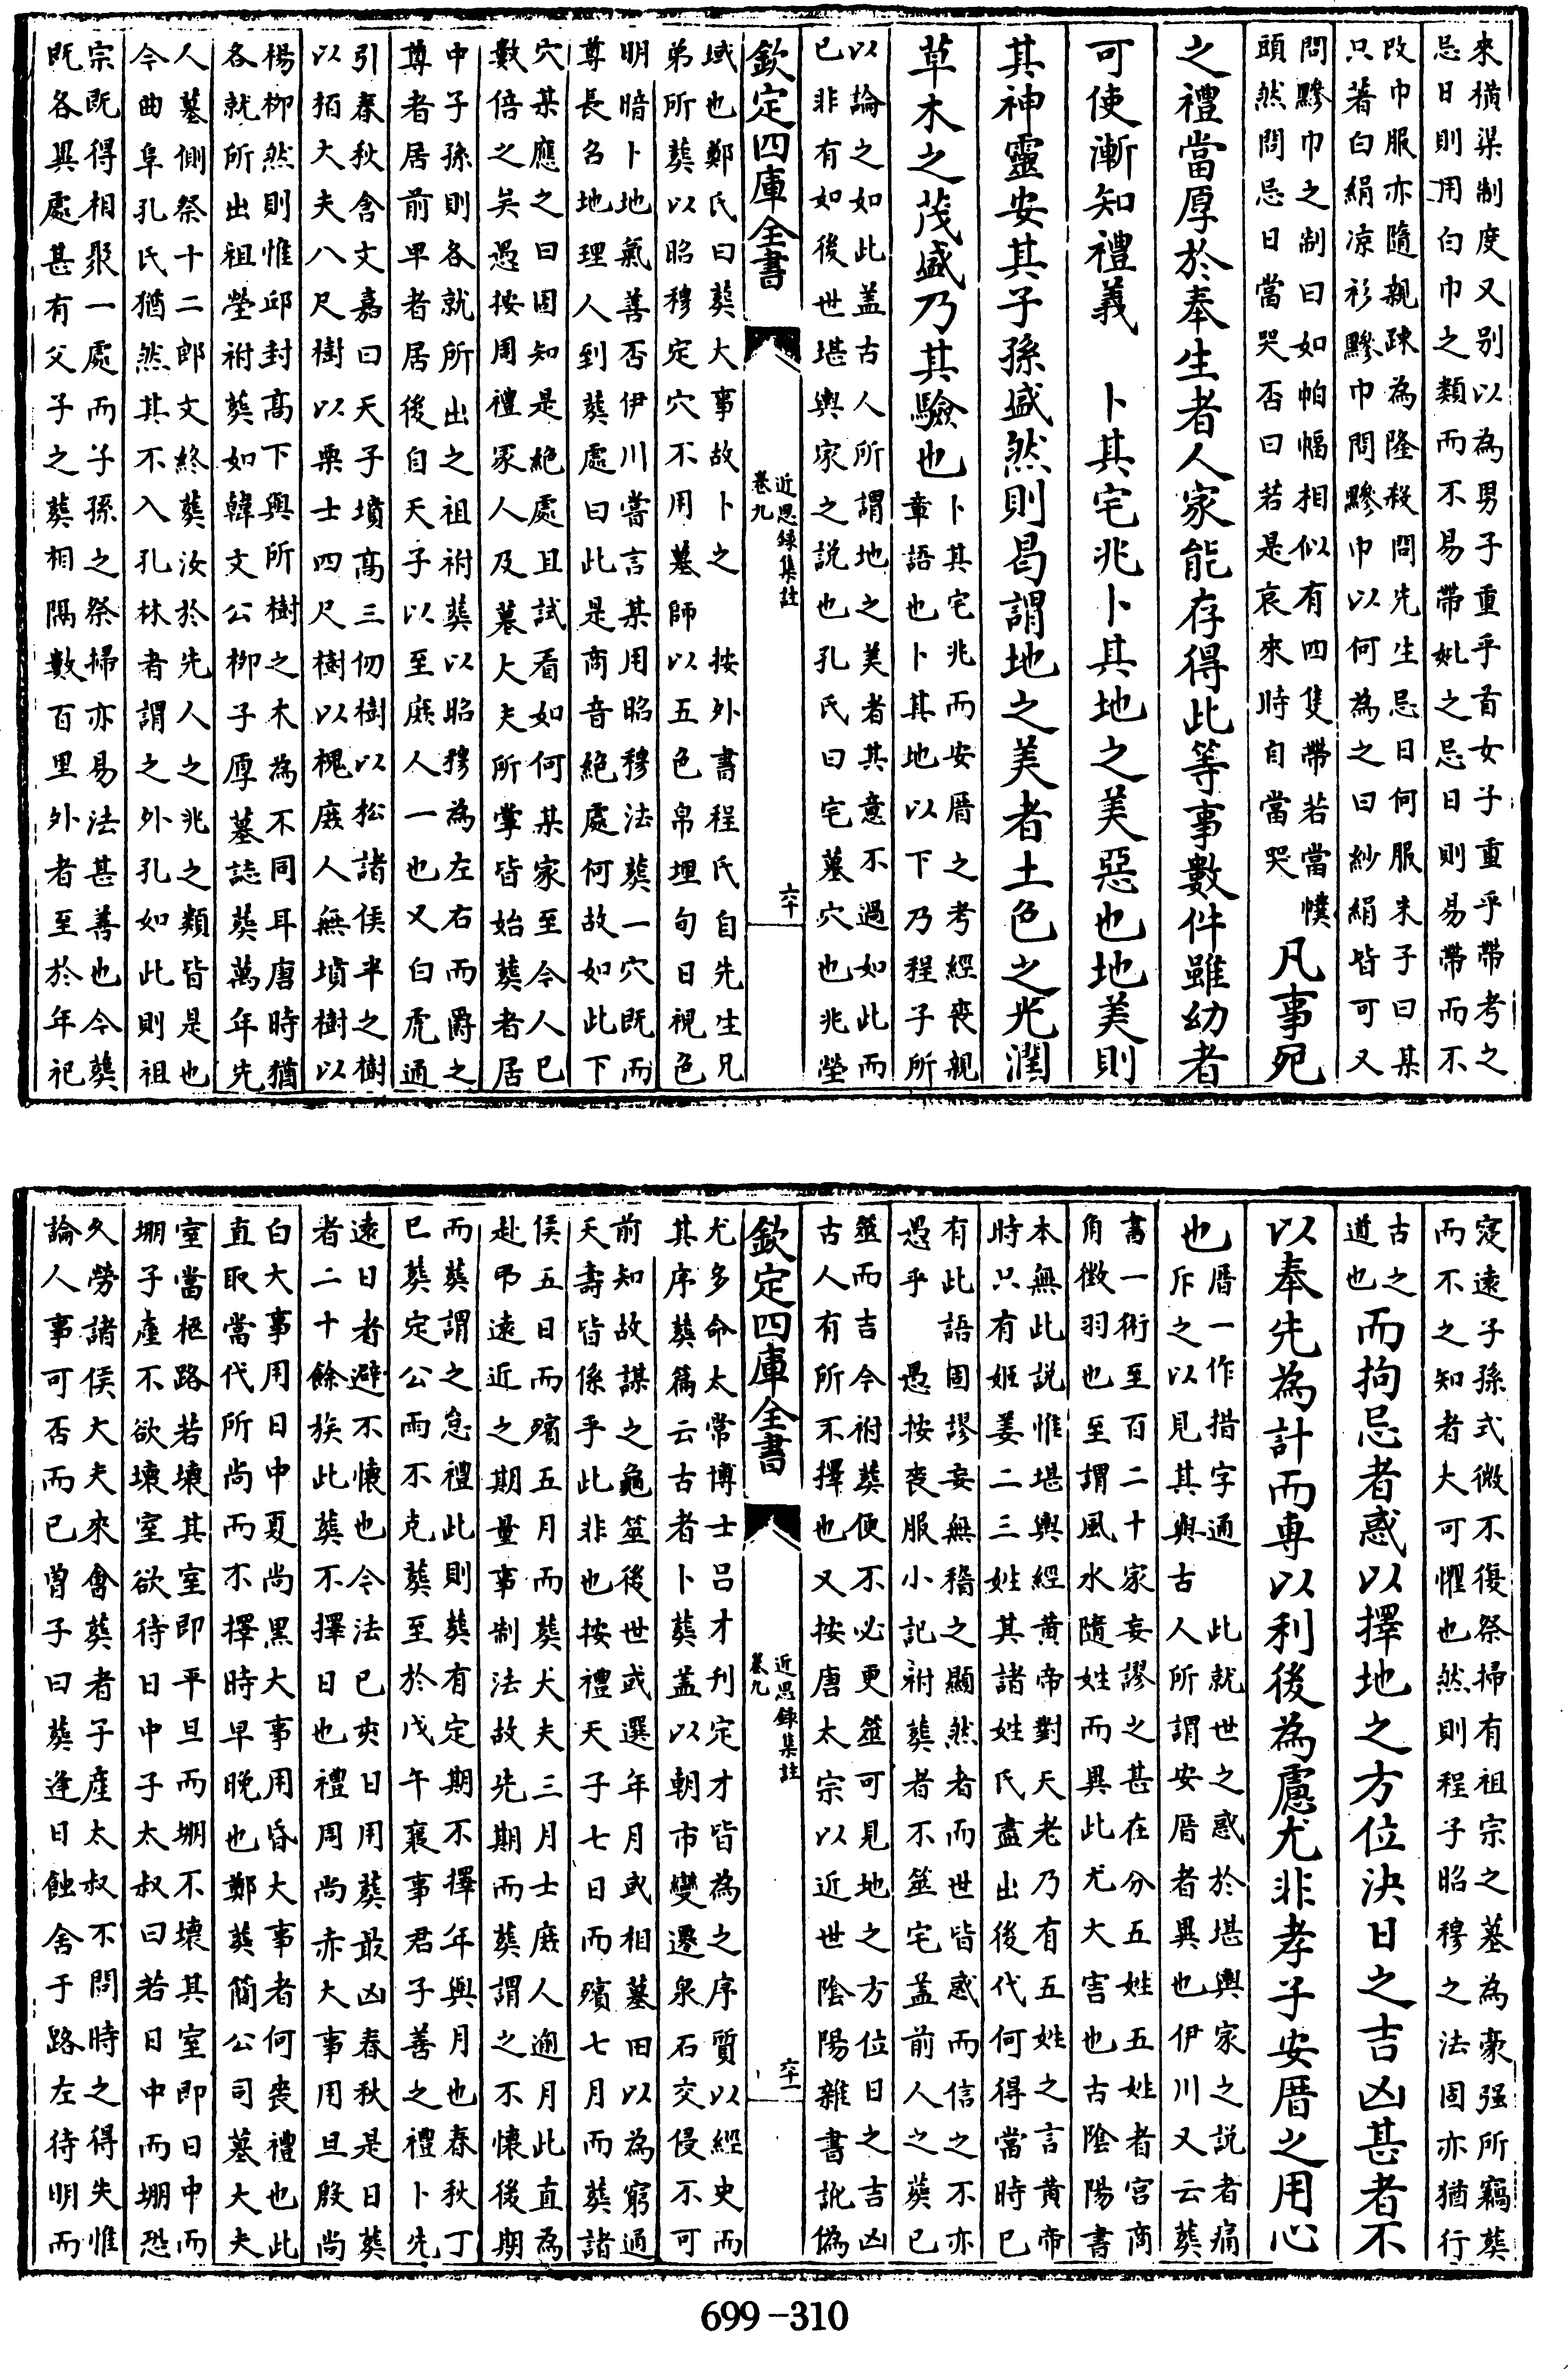 來横渠制度又别以為男子重乎首女子重乎帶考之
忌日則用白巾之類而不易帶妣之忌日則易帶而不
改巾服亦隨親疎為隆殺問先生忌日何服朱子曰某
只著白絹凉衫黲巾問黲巾以何為之曰紗絹皆可又
問黲巾之制曰如帕幅相似有四隻帶若當幞
頭然問忌日當哭否曰若是哀來時自當哭
凡事死
之禮當厚於奉生者人家能存得此等事數件雖幼者
可使漸知禮義　卜其宅兆卜其地之美惡也地美則
其神靈安其子孫盛然則曷謂地之美者土色之光潤
草木之茂盛乃其驗也
卜其宅兆而安厝之考經喪親
章語也卜其地以下乃程子所
以論之如此盖古人所謂地之美者其意不過如此而
已非有如後世堪輿家之説也孔氏曰宅墓穴也兆塋
欽定四庫全書
近思録集註
卷九
六十
域也鄭氏曰葬大事故卜之　按外書程氏自先生兄
弟所葬以昭穆定穴不用墓師以五色帛埋旬日視色
明暗卜地氣善否伊川嘗言某用昭穆法葬一穴既而
尊長名地理人到葬處曰此是商音絶處何故如此下
穴某應之曰固知是絶處且試看如何某家至今人已
數倍之矣愚按周禮冢人及墓大夫所掌皆始葬者居
中子孫則各就所出之祖祔葬以昭穆為左右而爵之
尊者居前卑者居後自天子以至庶人一也又白虎通
引春秋含文嘉曰天子墳高三仞樹以松諸侯半之樹
以栢大夫八尺樹以栗士四尺樹以槐庶人無墳樹以
楊柳然則惟邱封高下與所樹之木為不同耳唐時猶
各就所出祖塋祔葬如韓文公柳子厚墓誌葬萬年先
人墓側祭十二郎文終葬汝於先人之兆之類皆是也
今曲阜孔氏猶然其不入孔林者謂之外孔如此則祖
宗既得相聚一處而子孫之祭掃亦易法甚善也今葬
既各異處甚有父子之葬相隔數百里外者至於年祀
寖遠子孫式微不復祭掃有祖宗之墓為豪强所竊葬
而不之知者大可懼也然則程子昭穆之法固亦猶行
古之
道也
而拘忌者惑以擇地之方位決日之吉凶甚者不
以奉先為計而專以利後為慮尤非孝子安厝之用心
也
厝一作措字通　此就世之惑於堪輿家之説者痛
斥之以見其與古人所謂安厝者異也伊川又云葬
書一術至百二十家妄謬之甚在分五姓五姓者宫商
角徵羽也至謂風水隨姓而異此尤大害也古陰陽書
本無此説惟堪輿經黄帝對天老乃有五姓之言黄帝
時只有姬姜二三姓其諸姓氏盡出後代何得當時已
有此語固謬妄無稽之顯然者而世皆惑而信之不亦
愚乎　愚按喪服小記祔葬者不筮宅盖前人之葬已
筮而吉今祔葬便不必更筮可見地之方位日之吉凶
古人有所不擇也又按唐太宗以近世陰陽雜書訛偽
欽定四庫全書
近思録集註
卷九
六十一
尤多命太常博士吕才刋定才皆為之序質以經史而
其序葬篇云古者卜葬盖以朝市變遷泉石交侵不可
前知故謀之龜筮後世或選年月或相墓田以為窮通
夭壽皆係乎此非也按禮天子七日而殯七月而葬諸
侯五日而殯五月而葬大夫三月士庶人逾月此直為
赴弔遠近之期量事制法故先期而葬謂之不懷後期
而葬謂之怠禮此則葬有定期不擇年與月也春秋丁
已葬定公雨不克葬至於戊午襄事君子善之禮卜先
遠日者避不懷也今法已亥日用葬最凶春秋是日葬
者二十餘族此葬不擇日也禮周尚赤大事用旦殷尚
白大事用日中夏尚黑大事用昏大事者何喪禮也此
直取當代所尚而不擇時早晚也鄭葬簡公司墓大夫
室當柩路若壞其室即平旦而堋不壞其室即日中而
堋子產不欲壞室欲待日中子太叔曰若日中而堋恐
久勞諸侯大夫來會葬者子產太叔不問時之得失惟
論人事可否而已曾子曰葬逢日蝕舍于路左待明而
699-310